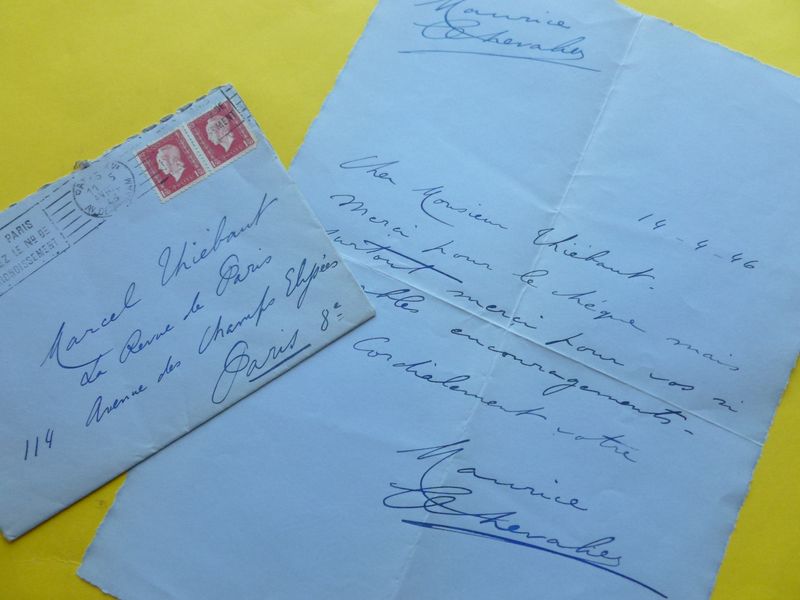 Maurice
Chevalier
14-4-46
Cher Monsieur Thiébaut.
Merci pour le chèque mais
surtout merci pour vos si
encouragements-
Cordialement votre
Maurice
Chevalier
PARIS
EZ LE No DE
RONDISSEMENT
Marcel Thiébaut
La Revue de Paris
114 Avenue des Champs Elysées
Paris 8e